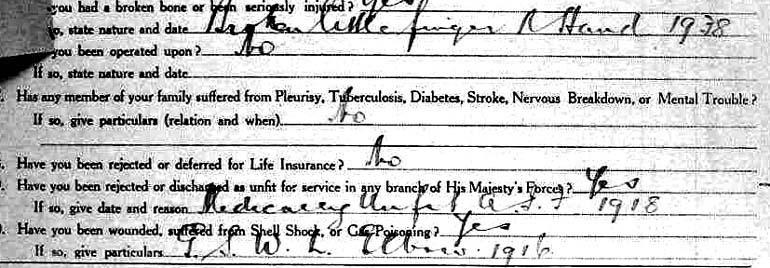 you had a broken bone or been seriously injured? Yes
so, state nature and date Broken little finger R Hand 1938
you been operated upon? No
If so, state nature and date
Has any member of your family suffered from Pleurisy, Tuberculosis, Diabetes, Stroke, Nervous Breakdown, or Mental Trouble?
If so, give particulars (relation and when) No
Have you been rejected or deferred for Life Insurance? No
Have you been rejected or discharged as unfit for service in any branch of His Majesty's Forces? Yes
If so, give date and reason Medically Unfit A.I.F 1918
Have you been wounded, suffered from Shell Shock, or Gas Poisoning? Yes
If so, give particulars G.S.W. L. Elbow. 1916